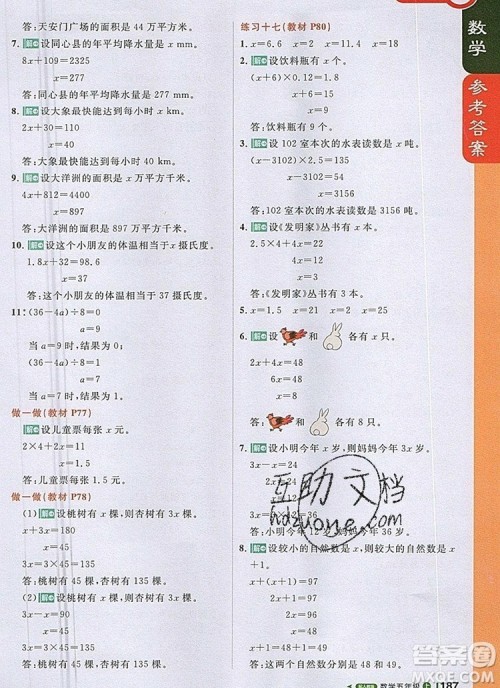 答:天安门广场的面积是 44 万平方米。
7. 解 设同心县的年平均降水量是 x mm。
8x+109=2325
x=277
答:同心县的年平均降水量是 277 mm。
8. 解 设大象最快能达到每小时 x km。
2x+30=110
x=40
答:大象最快能达到每小时 40 km。
9. 解 设大洋洲的面积是 x 万平方千米。
4x+812=4400
x=897
答:大洋洲的面积是 897 万平方千米。
10. 解 设这个小朋友的体温相当于 x 华氏度。
1.8x+32=98.6
x=37
答:这个小朋友的体温相当于 37 摄氏度。
11. (36-4a)÷8=0
a=9
当 a=9 时,结果为 0;
(36-4a)÷8=1
a=7
当 a=7 时,结果为 1。
做一做(教材 P77)
解 设儿童票每张 x 元。
2×4+2x=11
x=1.5
答:儿童票每张 1.5 元。
做一做(教材 P78)
(1) 解 设桃树有 x 棵,则杏树有 3x 棵。
x+3x=180
x=45
3x=3×45=135
答:桃树有 45 棵,杏树有 135 棵。
(2) 解 设桃树有 x 棵,则杏树有 3x 棵。
3x-x=90
x=45
3x=3×45=135
答:桃树有 45 棵,杏树有 135 棵。
练习十七(教材 P80)
1. x=6.6 x=2 x=18 x=2
2. 解 设饮料瓶有 x 个。
(x+6)×0.12=1.8
x=9
答:饮料瓶有 9 个。
3. 解 设 102 室本次的水表读数是 x 吨。
x=3156
答:102 室本次的水表读数是 3156 吨。
4. 解 设《发明家》丛书有 x 本。
2.5×4+4x=22
x=3
答:《发明家》丛书有 3 本。
5. x=9 x=3 x=40 x=4
6. 解 设 和 各有 x 只。
2x+4x=48
x=8
答: 和 各有 8 只。
7. 解 设小明今年 x 岁,则妈妈今年 3x 岁。
3x-x=24
x=12
答:小明今年 12 岁,妈妈今年 36 岁。
8. 解 设较小的自然数是 x,则较大的自然数是 x
+1。
x+x+1=97
x=48
x+1=49
数学 参考答案
互助文档
hdzuoye.com
数学五年级 上 187
作业帮